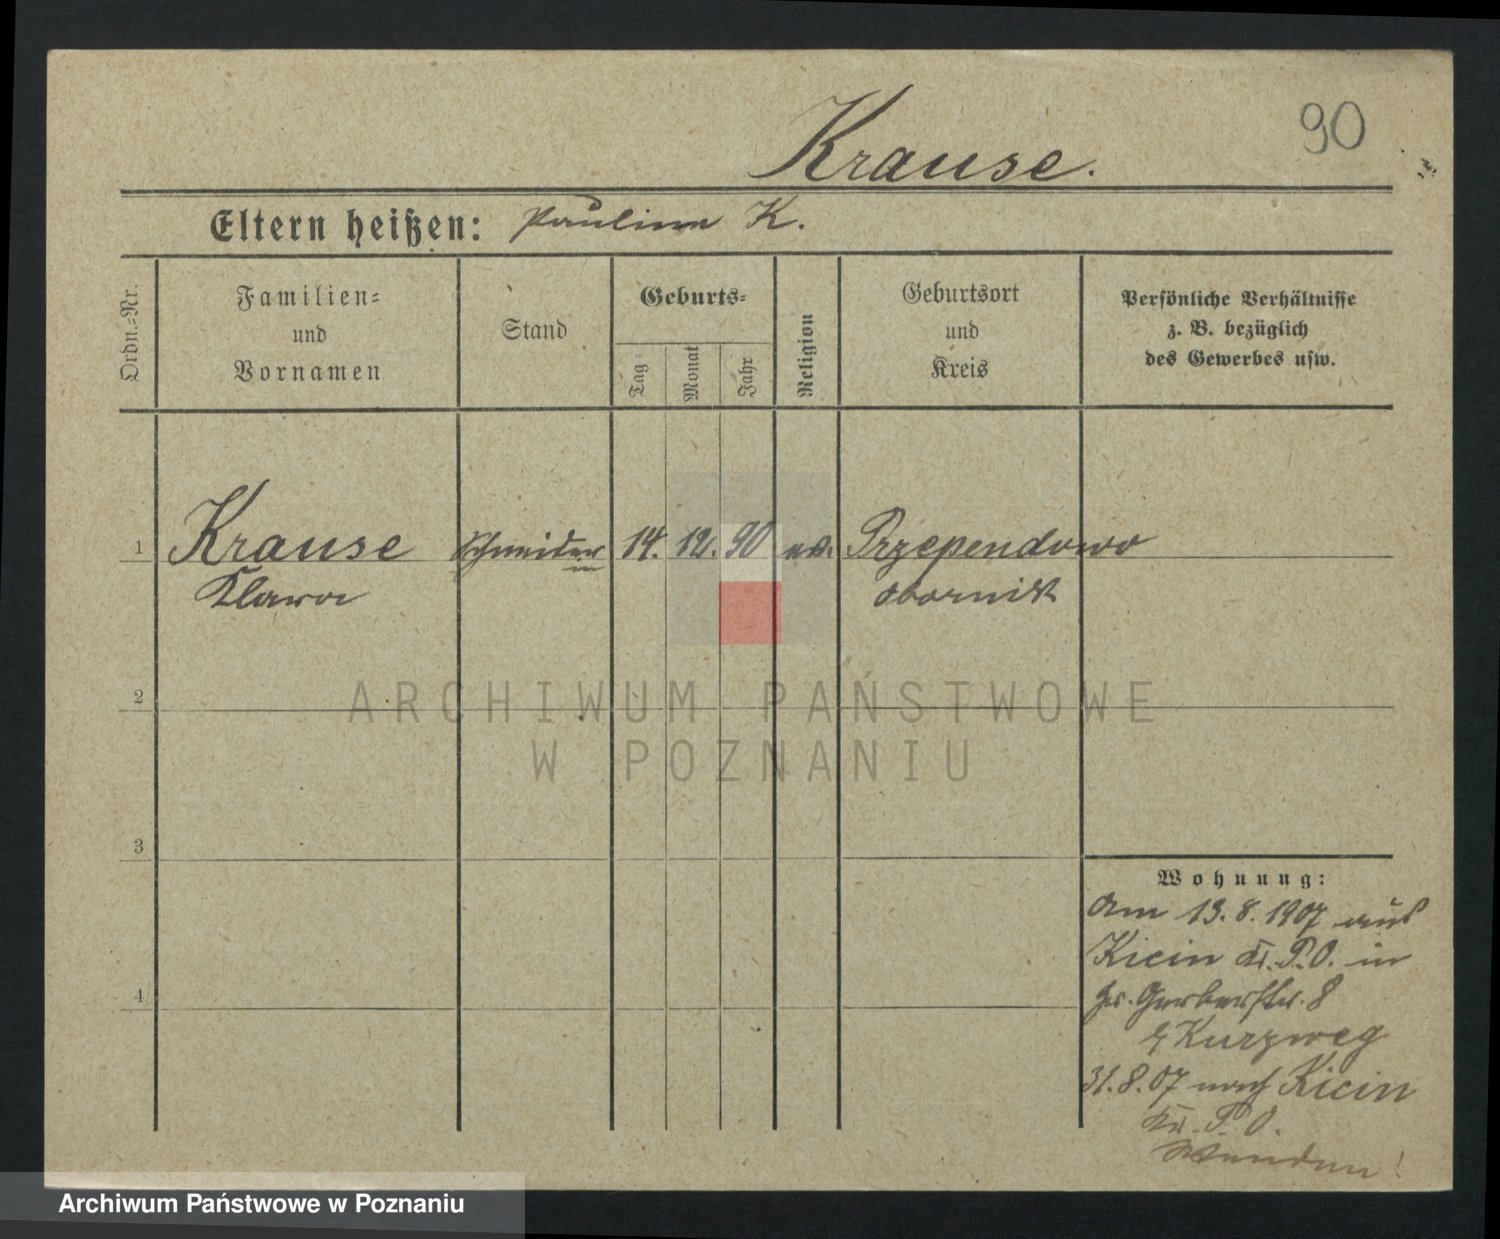 90
Krause.
Eltern heißen: Paulina K.
Ordn.=Nr.
Familien=
und
Vornamen
Stand
Geburts=
Tag
Monat
Jahr
Religion
Geburtsort
und
Kreis
Persönliche Verhältnisse
z. B. bezüglich
des Gewerbes usw.
1 Krause Schneiderin 14. 12. 90 ev. Przependowo
Klara Obornik
2
ARCHIWUM PAŃSTWOWE
W POZNANIU
3
Wohnung:
Am 13. 8. 1907 aus
Kicin Kr. P.O. in
Gr. Gerberstr. 8
Kurzweg
4
31. 8. 07 nach Kicin
Kr. P. O.
Wenden!
Archiwum Państwowe w Poznaniu